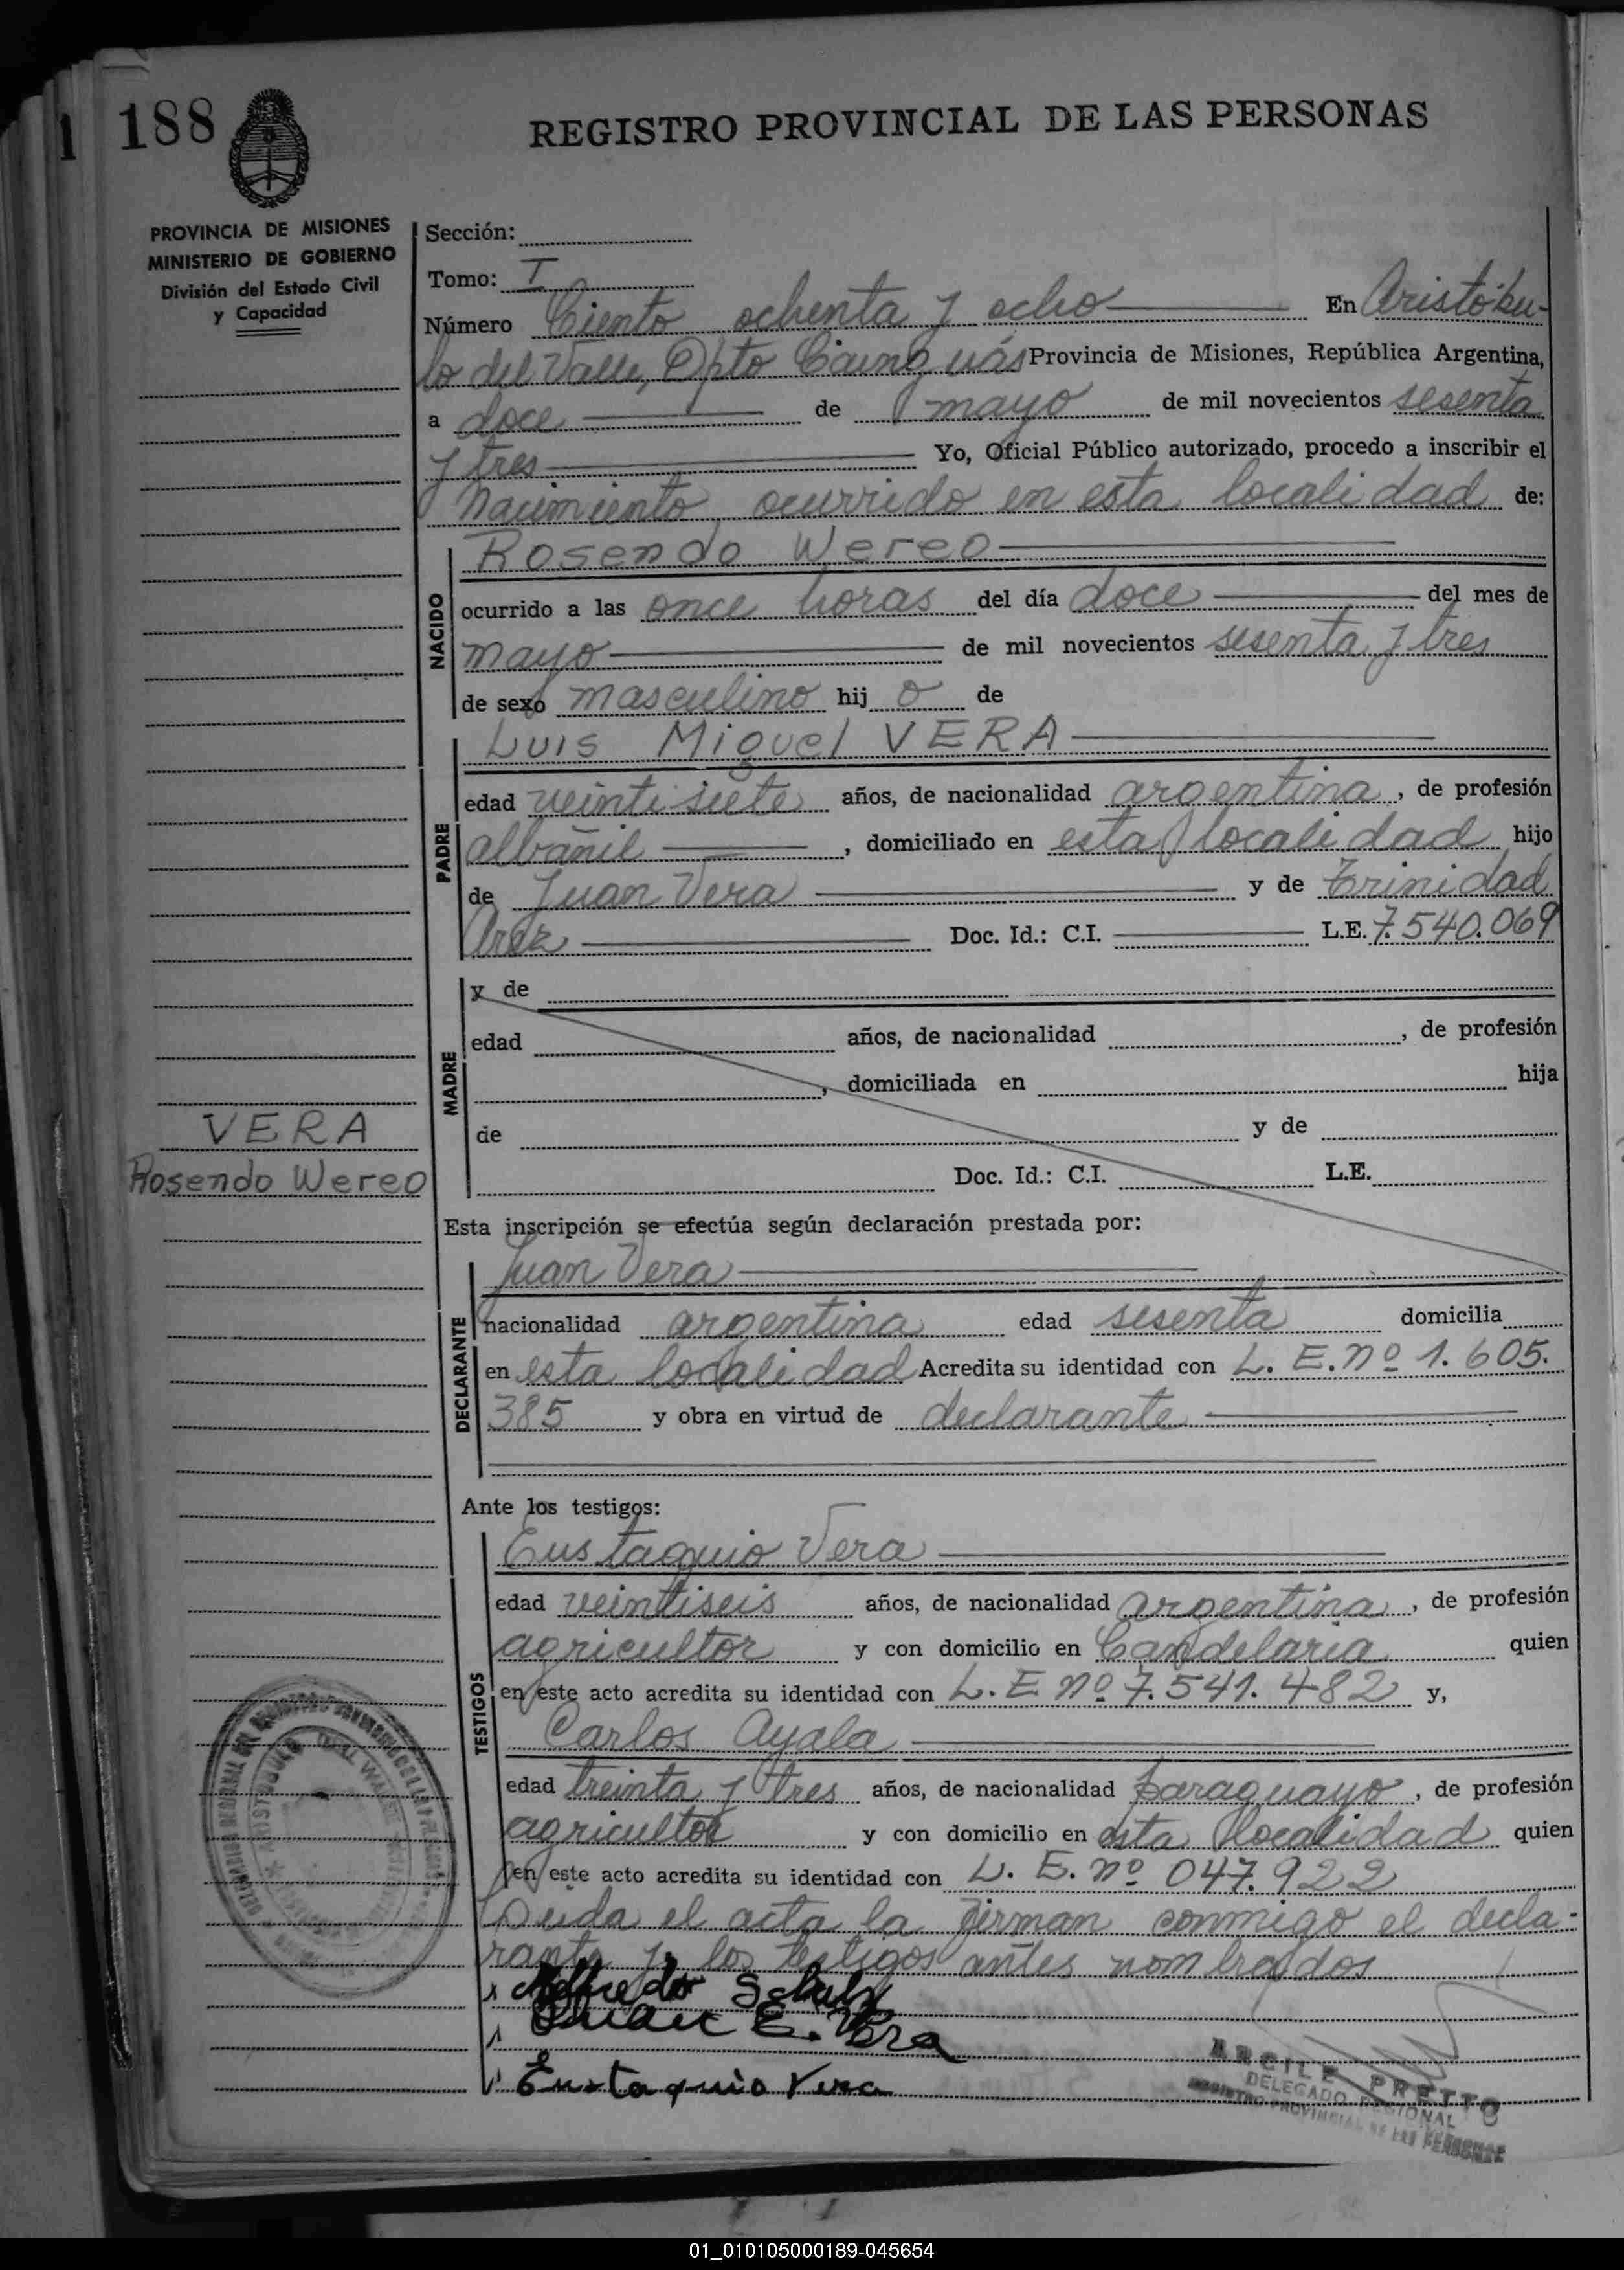 1 188
REGISTRO PROVINCIAL DE LAS PERSONAS
PROVINCIA DE MISIONES
MINISTERIO DE GOBIERNO
División del Estado Civil
y Capacidad
Sección:
Tomo: I
Número Ciento ochenta y ocho En Aristóbu-
lo del Valle, Dpto Cainguás Provincia de Misiones, República Argentina,
a doce de mayo de mil novecientos sesenta
y tres Yo, Oficial Público autorizado, procedo a inscribir el
Nacimiento ocurrido en esta localidad de:
NACIDO
Rosendo Wereo
ocurrido a las once horas del día doce del mes de
mayo de mil novecientos sesenta y tres
de sexo masculino hij o de
PADRE
Luis Miguel VERA
edad veintisiete años, de nacionalidad argentina, de profesión
albañil, domiciliado en esta localidad hijo
de Juan Vera y de Trinidad
Doc. Id.: C.I. L.E. 7.540.069
MADRE
y de
edad años, de nacionalidad , de profesión
, domiciliada en hija
de y de
Doc. Id.: C.I. L.E.
VERA
Rosendo Wereo
Esta inscripción se efectúa según declaración prestada por:
DECLARANTE
Juan Vera
nacionalidad argentina edad sesenta domicilia
en esta localidad Acredita su identidad con L. E. nº 1.605.
385 y obra en virtud de declarante
Ante los testigos:
TESTIGOS
Eustaquio Vera
edad veintiseis años, de nacionalidad argentina, de profesión
agricultor y con domicilio en Candelaria quien
en este acto acredita su identidad con L. E nº 7.541.482 y,
Carlos Ayala
edad treinta y tres años, de nacionalidad paraguayo, de profesión
agricultor y con domicilio en esta localidad quien
en este acto acredita su identidad con L. E. nº 047.922
Leida el acta la firman conmigo el decla-
rante y los testigos antes nombrados
Alfredo Schulz
Juan E. Vera
Eustaquio Vera
ARCILE PRETTO
DELEGADO REGIONAL
REGISTRO PROVINCIAL DE LAS PERSONAS
01_010105000189-045654